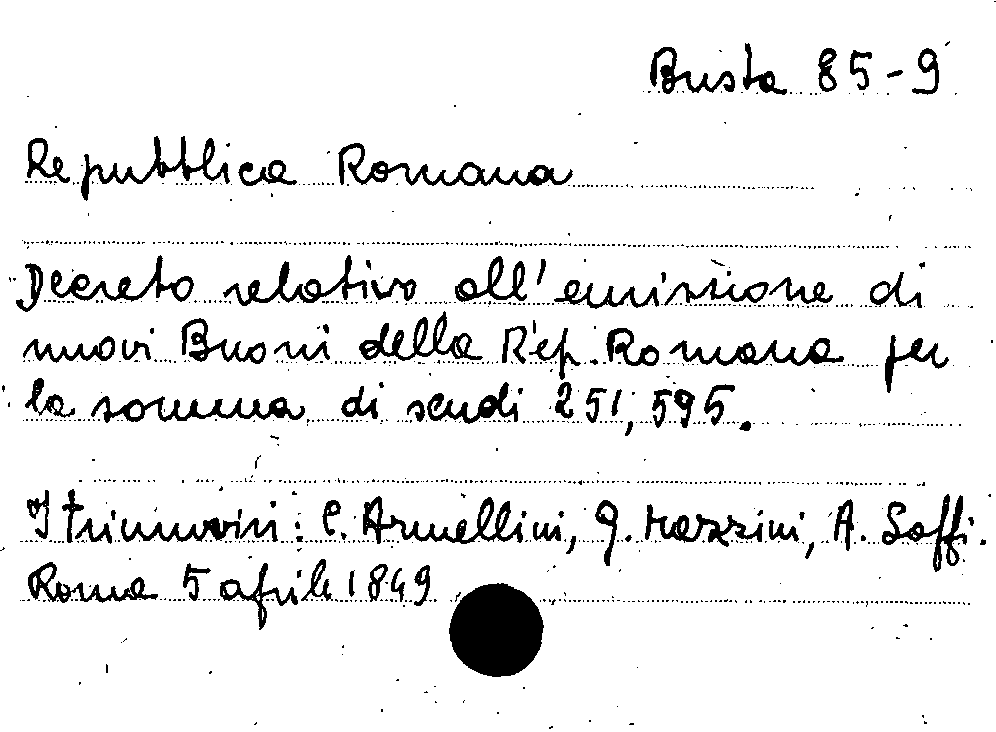 Busta 85-9
Repubblica Romana
Decreto relativo all'emissione di
nuovi Buoni della Rep. Romana per
la somma di scudi 251,595.
I triumviri: C. Armellini, G. Mazzini, A. Saffi.
Roma 5 aprile 1849